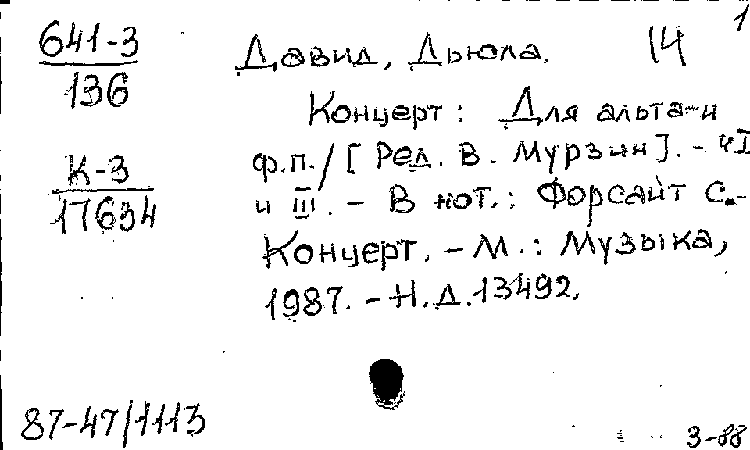 1
641-3
136
Давид, Дьюла. 14
Концерт: Для альта и
К-3
17634
ф.п./[Ред. В. Мурзин]. - чI
и III. - В нот.: Форсайт С.-
Концерт. - М.: Музыка,
1987. - Н.д. 13492.
87-47/1113
3-88